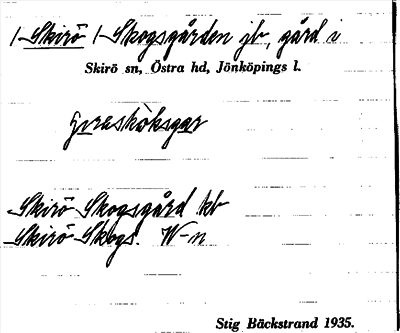 /-Skirö /-Skogsgården jb, gård i
Skirö sn, Östra hd, Jönköpings l.
Skirö Skogsgård kb
Skirö Skogs. W-n
Stig Bäckstrand 1935.